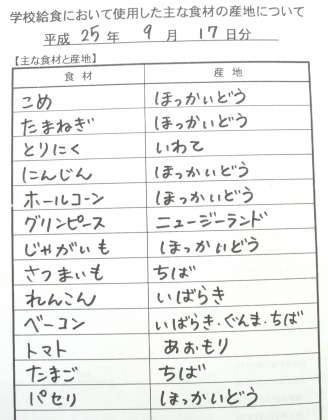 学校給食において使用した主な食材の産地について
平成 25 年 9 月 17 日分
【主な食材と産地】
食材 産地
こめ ほっかいどう
たまねぎ ほっかいどう
とりにく いわて
にんじん ほっかいどう
ホールコーン ほっかいどう
グリンピース ニュージーランド
じゃがいも ほっかいどう
さつまいも ちば
れんこん いばらき
ベーコン いばらき・ぐんま・ちば
トマト あおもり
たまご ちば
パセリ ほっかいどう